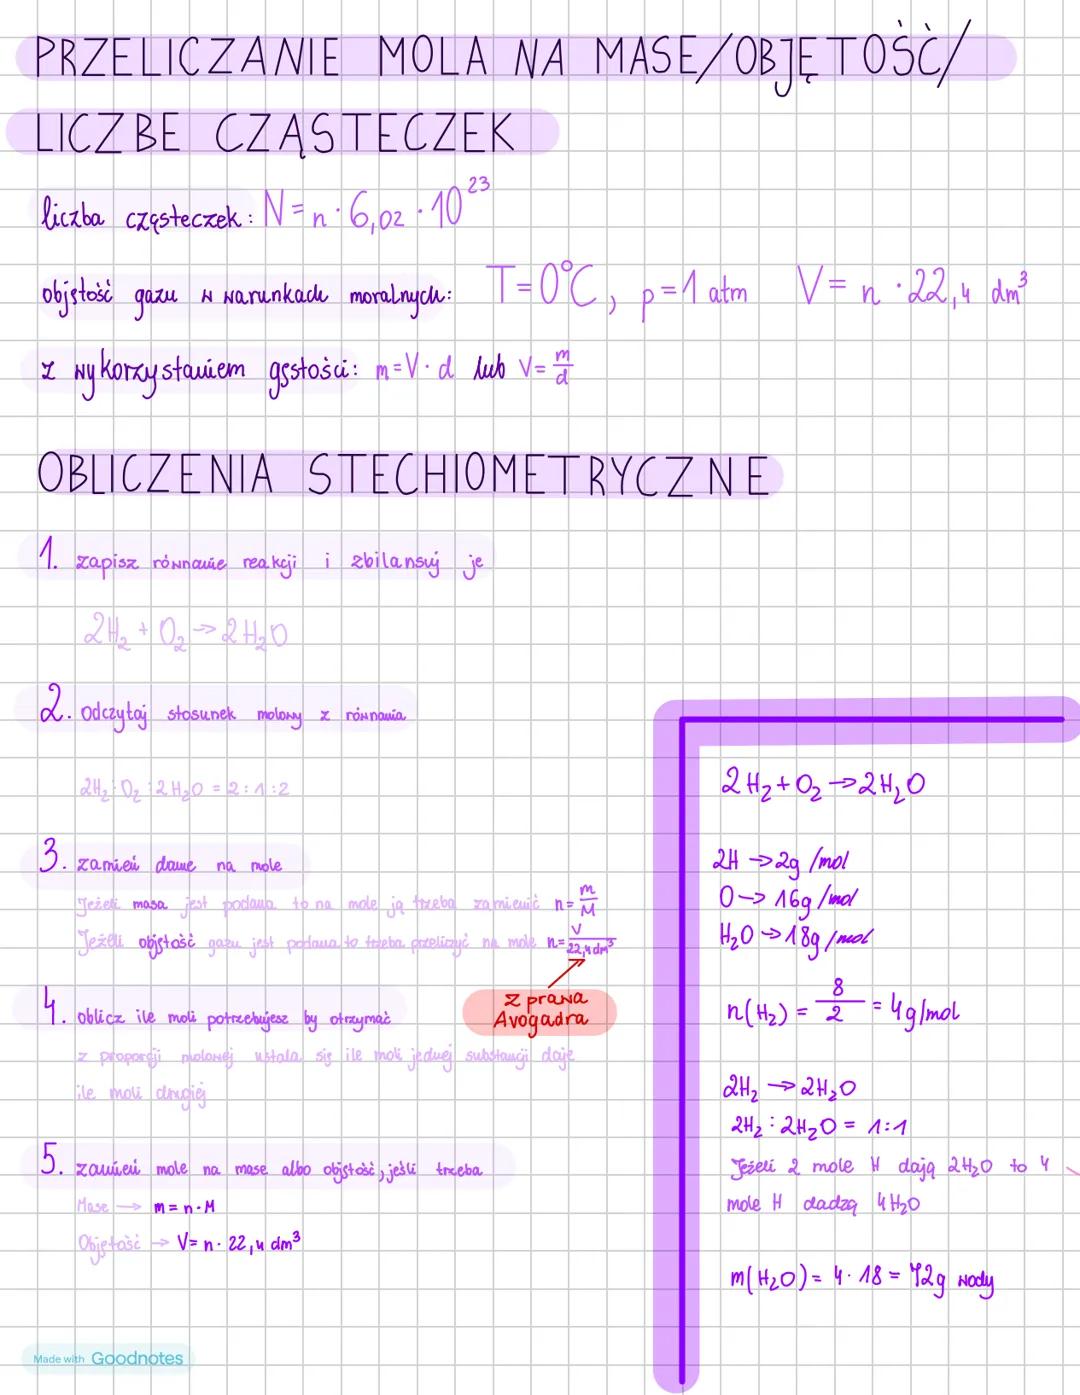 PRZELICZANIE MOLA NA MASE/OBJĘTOŚĆ/
LICZBE CZĄSTECZEK
liczba cząsteczek: N = n · 6,02 · 10²³
objętość gazu w warunkach moralnych: T=0°C, p=1 atm V= n · 22,4 dm³
z wykorzystaniem gęstości: m=V·d lub V= m/d
OBLICZENIA STECHIOMETRYCZNE
1. zapisz równanie reakcji i zbilansuj je
2H₂ + O₂ → 2H₂O
2. odczytaj stosunek molowy z równania
2H₂ : O₂ : 2H₂O = 2:1:2
3. zamień dane na mole
Jeżeli masa jest podana to na mole ją trzeba zamienić n= m/M
Jeżeli objętość gazu jest podana to trzeba przeliczyć na mole n= V/22,4 dm³
z prawa
Avogadra
4. oblicz ile moli potrzebujesz by otrzymać
z proporcji molowej ustala się ile moli jednej substancji daje
ile moli drugiej
5. zamień mole na mase albo objętość, jeśli trzeba
Mase → m=n·M
Objętość → V= n· 22,4 dm³
2H₂ + O₂ → 2H₂O
2H → 2g /mol
O → 16g/mol
H₂O → 18g/mol
n(H₂) = 8/2 = 4g/mol
2H₂ → 2H₂O
2H₂ : 2H₂O = 1:1
Jeżeli 2 mole H dają 2H₂O to 4
mole H dadzą 4H₂O
m(H₂O) = 4·18 = 72g wody
Made with Goodnotes